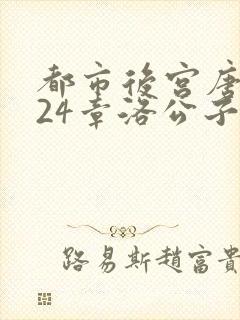 都市後宮唐
24章洛公子
路易斯趙富貴